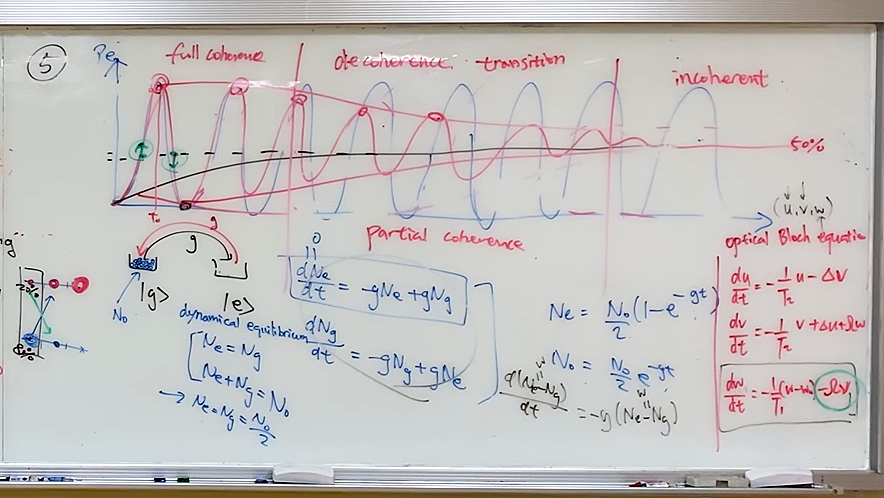 ⑤
Pe
full coherence
decoherence transition
incoherent
50%
T₀
partial coherence
(u,v,w)
optical Bloch equation
g
g
N₀
|g>
|e>
0
||
dNe/dt = -gNe + gNg
dNg/dt = -gNg + gNe
dynamical equilibrium
Ne = Ng
Ne+Ng = N₀
→ Ne = Ng = N₀/2
Ne = N₀/2 (1-e^-gt)
N₀ = N₀/2 e^-gt
w
||
w
||
d(Ne-Ng)/dt = -g(Ne-Ng)
du/dt = -1/T₂ u - Δv
dv/dt = -1/T₂ v + Δu + Ωw
dw/dt = -1/T₁ (w-w₀) - Ωv